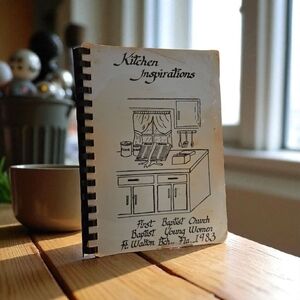 Kitchen
Inspirations
First Baptist Church
Baptist Young Women
Ft. Walton Bch., Fla. 1983